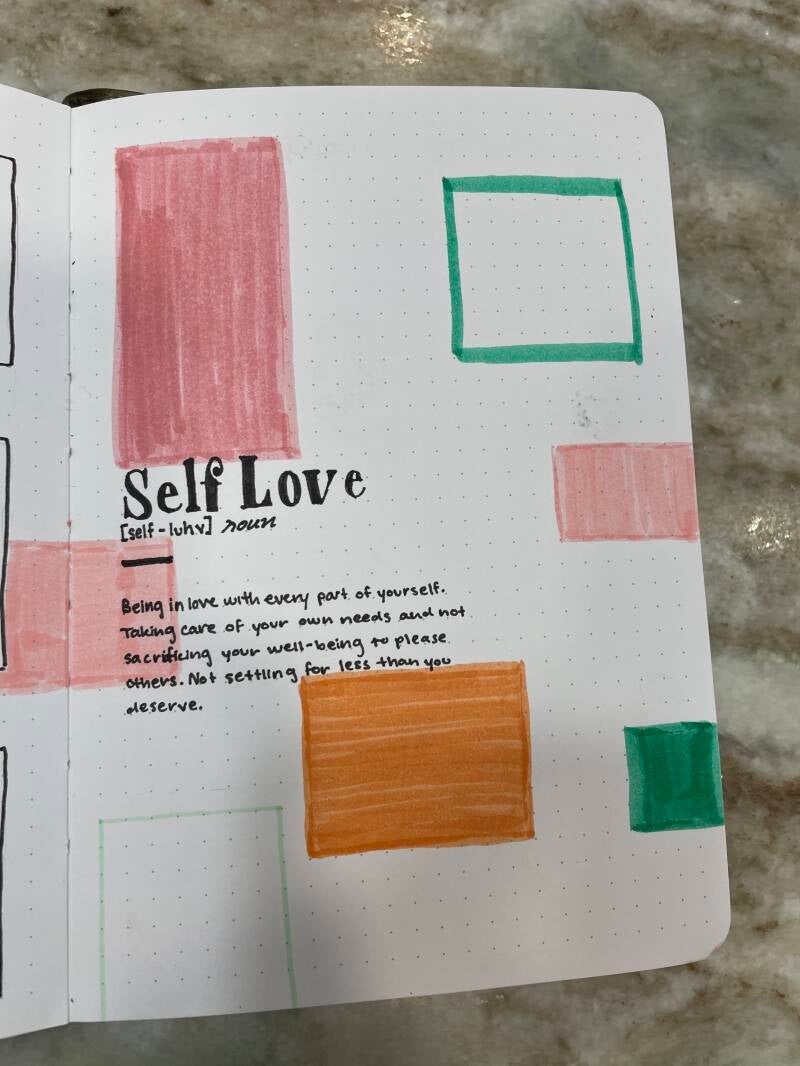 Self Love
[self-luhv] noun
Being in love with every part of yourself.
Taking care of your own needs and not
sacrificing your well-being to please
others. Not settling for less than you
deserve.